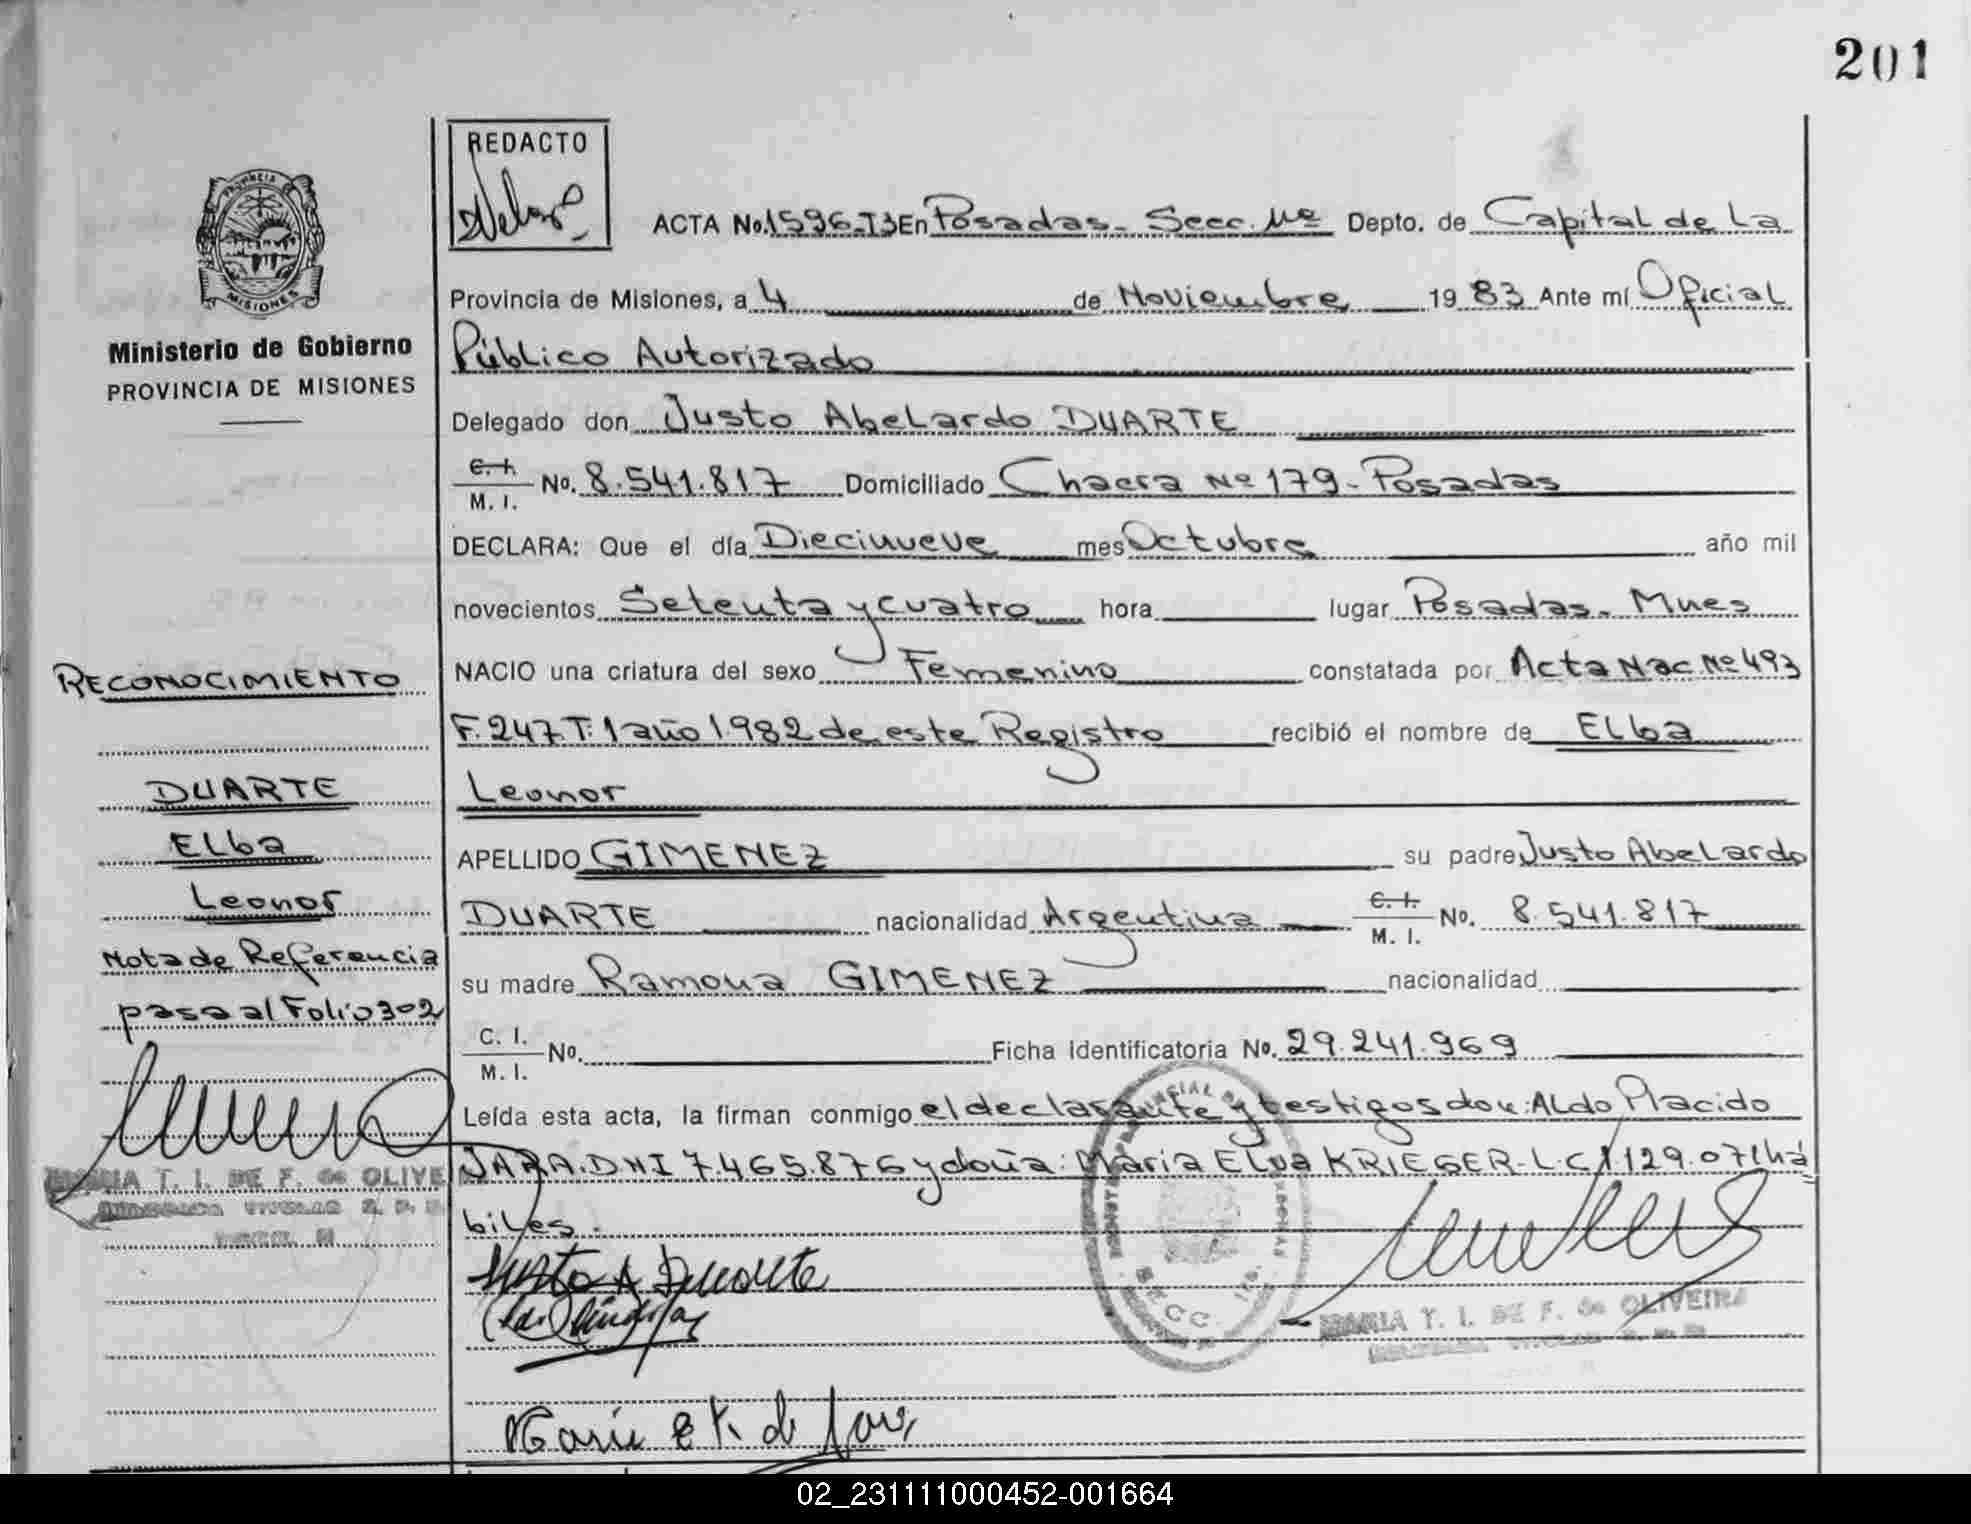 201
REDACTO
PROVINCIA DE
MISIONES
Ministerio de Gobierno
PROVINCIA DE MISIONES
ACTA No. 1596-T3 En Posadas - Secc. 11º Depto. de Capital de La
Provincia de Misiones, a 4 de Noviembre 1983 Ante mí Oficial
Público Autorizado
Delegado don Justo Abelardo DUARTE
C. I. M. I. No. 8.541.817 Domiciliado Chacra Nº 179 - Posadas
DECLARA: Que el día Diecinueve mes Octubre año mil
novecientos Setenta y cuatro hora lugar Posadas - Mnes
NACIO una criatura del sexo Femenino constatada por Acta Nac. Nº 493
F. 247 T. 1 año 1982 de este Registro recibió el nombre de Elba
Leonor
APELLIDO GIMENEZ su padre Justo Abelardo
DUARTE nacionalidad Argentina C. I. M. I. No. 8.541.817
su madre Ramona GIMENEZ nacionalidad
C. I. M. I. No. Ficha identificatoria No. 29.241.969
Leída esta acta, la firman conmigo el declarante y testigos don: Aldo Placido
JARA. DNI 7.465.876 y doña: Maria Elva KRIEGER - L.C 1.129.071 há
biles.
RECONOCIMIENTO
DUARTE
Elba
Leonor
Nota de Referencia
pasa al Folio 302
MARIA T. I. DE F. de OLIVE
Justo A Duarte
SECC.
MARIA T. I. DE F. de OLIVEIRA
Maria E K. de Jara
02_231111000452-001664